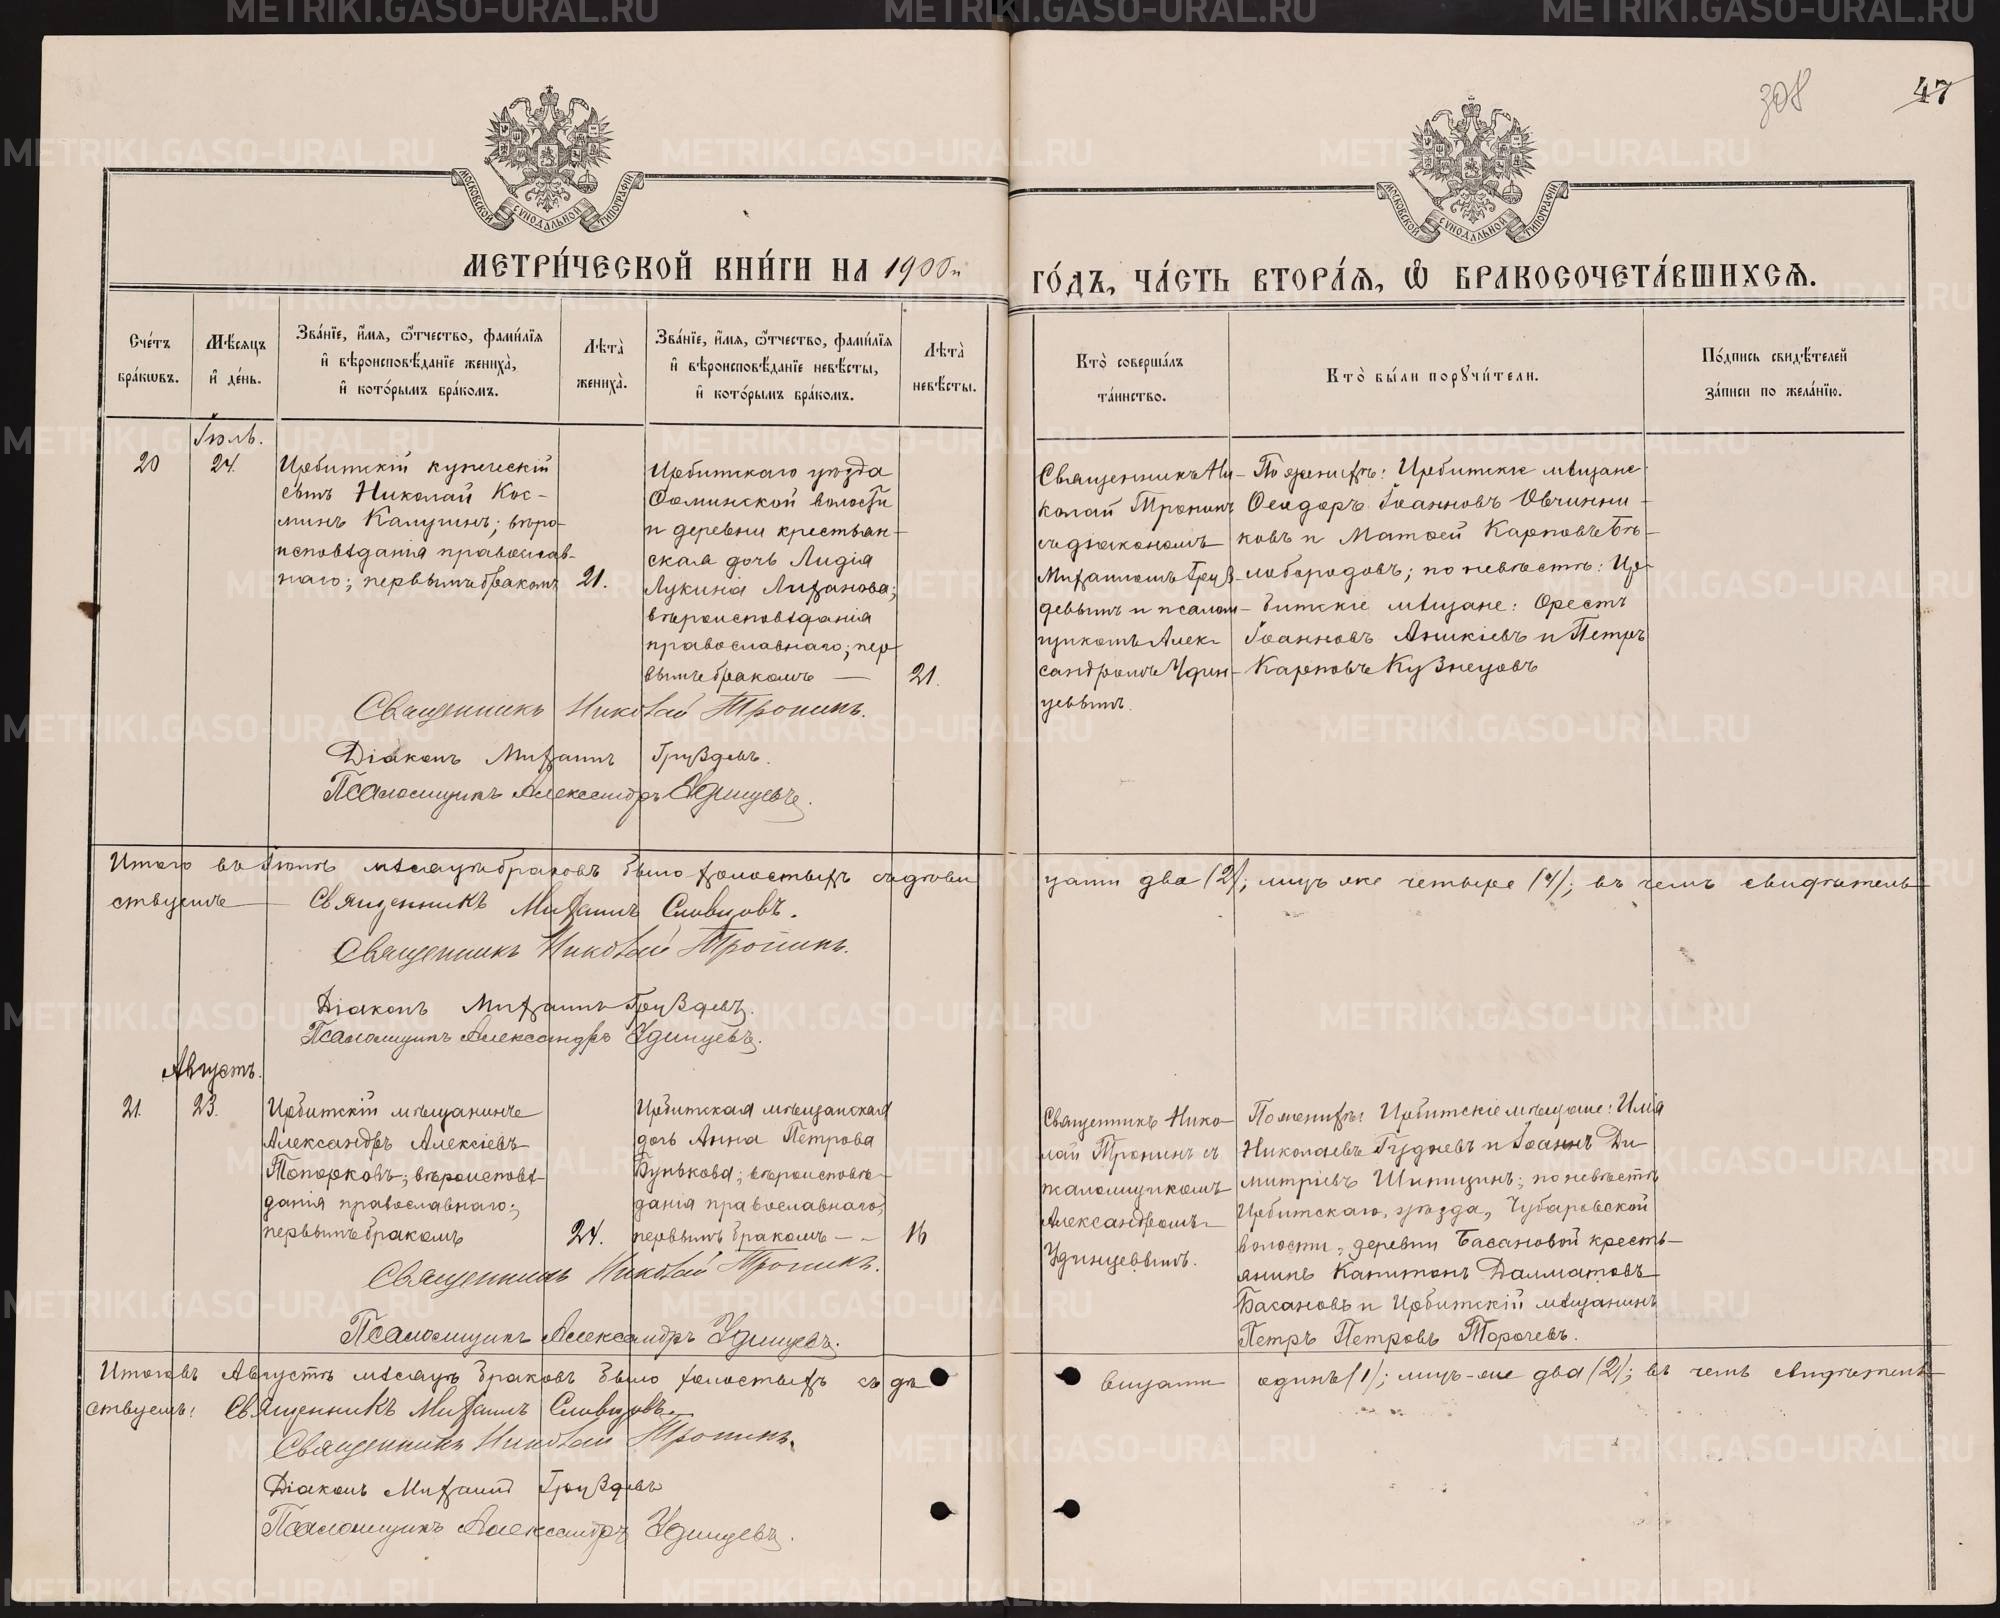 308
47
МОСКОВСКОЙ СУНОДАЛЬНОЙ ТИПОГРАФІИ
МОСКОВСКОЙ СУНОДАЛЬНОЙ ТИПОГРАФІИ
МЕТРИ́ЧЕСКОЙ КНИ́ГИ НА 1900й
ГО́ДЪ, ЧА́СТЬ ВТОРА́Я, Ѡ БРАКОСОЧЕТА́ВШИХСѦ.
Сче́тъ бра́кѡвъ.
Мѣ́сяцъ и де́нь.
Зва́нїе, и́мя, ѻ́тчество, фами́лїя
и вѣроисповѣ́данїе жениха̀,
и кото́рымъ бра́комъ.
Лѣта̀ жениха̀.
Зва́нїе, и́мя, ѻ́тчество, фами́лїя
и вѣроисповѣ́данїе невѣ́сты,
и кото́рымъ бра́комъ.
Лѣта̀ невѣ́сты.
Кто̀ соверша́лъ
та́инство.
Кто̀ бы́ли поручи́тели.
По́дпись свидѣ́телей
за́писи по жела́нїю.
Іюль.
20
24.
Ирбитскій купеческій
сынъ Николай Кос-
минъ Калугинъ; вѣро-
исповѣданія православ-
наго; первымъ бракомъ
21.
Ирбитскаго уѣзда
Фоминской волости
и деревни крестьян-
ская дочь Лидія
Лукина Лиханова;
вѣроисповѣданія
православнаго; пер-
вымъ бракомъ —
21.
Священникъ Ни-
колай Тронинъ
съ діакономъ
Михаиломъ Груз-
девымъ и псалом-
щикомъ Алек-
сандромъ Удин-
цевымъ.
По женихѣ: Ирбитскіе мѣщане
Ѳеодоръ Іоанновъ Овчинни-
ковъ и Матѳей Карповъ Бѣ-
лобородовъ; по невѣстѣ: Ир-
битскіе мѣщане: Орестъ
Іоанновъ Аникіевъ и Петръ
Карповъ Кузнецовъ
Священникъ Николай Тронинъ.
Діаконъ Михаилъ Груздевъ.
Псаломщикъ Александръ Удинцевъ.
Итого въ Іюлѣ мѣсяцѣ браковъ было холостыхъ съ дѣви
цами два (2); лицъ же четыре (4); въ чемъ свидѣтель-
ствуемъ — Священникъ Михаилъ Словцовъ.
Священникъ Николай Тронинъ.
Діаконъ Михаилъ Груздевъ.
Псаломщикъ Александръ Удинцевъ.
Августъ.
21.
23.
Ирбитскій мѣщанинъ
Александръ Алексіевъ
Топорковъ; вѣроисповѣ-
данія православнаго;
первымъ бракомъ
24.
Ирбитская мѣщанская
дочь Анна Петрова
Бунькова; вѣроисповѣ-
данія православнаго;
первымъ бракомъ — -
16
Священникъ Нико-
лай Тронинъ съ
псаломщикомъ
Александромъ
Удинцевымъ.
По женихѣ: Ирбитскіе мѣщане: Илія
Николаевъ и Іоаннъ Ди-
митріевъ Шипицинъ; по невѣстѣ
Ирбитскаго уѣзда, Чубаровской
волости, деревни Басановой кресть-
янинъ Капитонъ Далматовъ
Басановъ и Ирбитскій мѣщанинъ
Петръ Петровъ
Священникъ Николай Тронинъ.
Псаломщикъ Александръ Удинцевъ.
Итого въ Августѣ мѣсяцѣ браковъ было холостыхъ съ дѣ
вицами одинъ (1); лицъ же два (2); въ чемъ свидѣтель-
ствуемъ: Священникъ Михаилъ Словцовъ.
Священникъ Николай Тронинъ.
Діаконъ Михаилъ Груздевъ
Псаломщикъ Александръ Удинцевъ.
METRIKI.GASO-URAL.RU